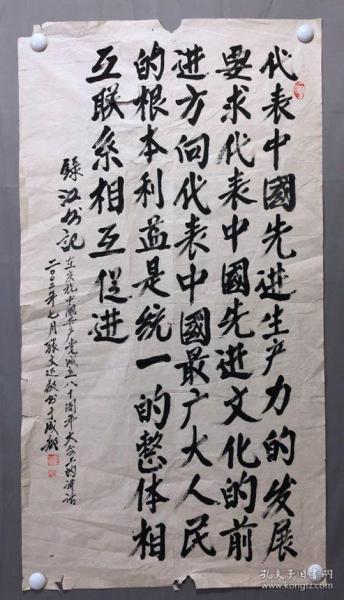 代表中國先进生产力的发展
要求代表中國先进文化的前
进方向代表中國最广大人民
的根本利益是统一的整体相
互联系相互促进
錄江书记
在庆祝中国共产党成立八十周年大会上的讲话
二〇〇二年七月张文达敬书于成都
孔夫子旧书网